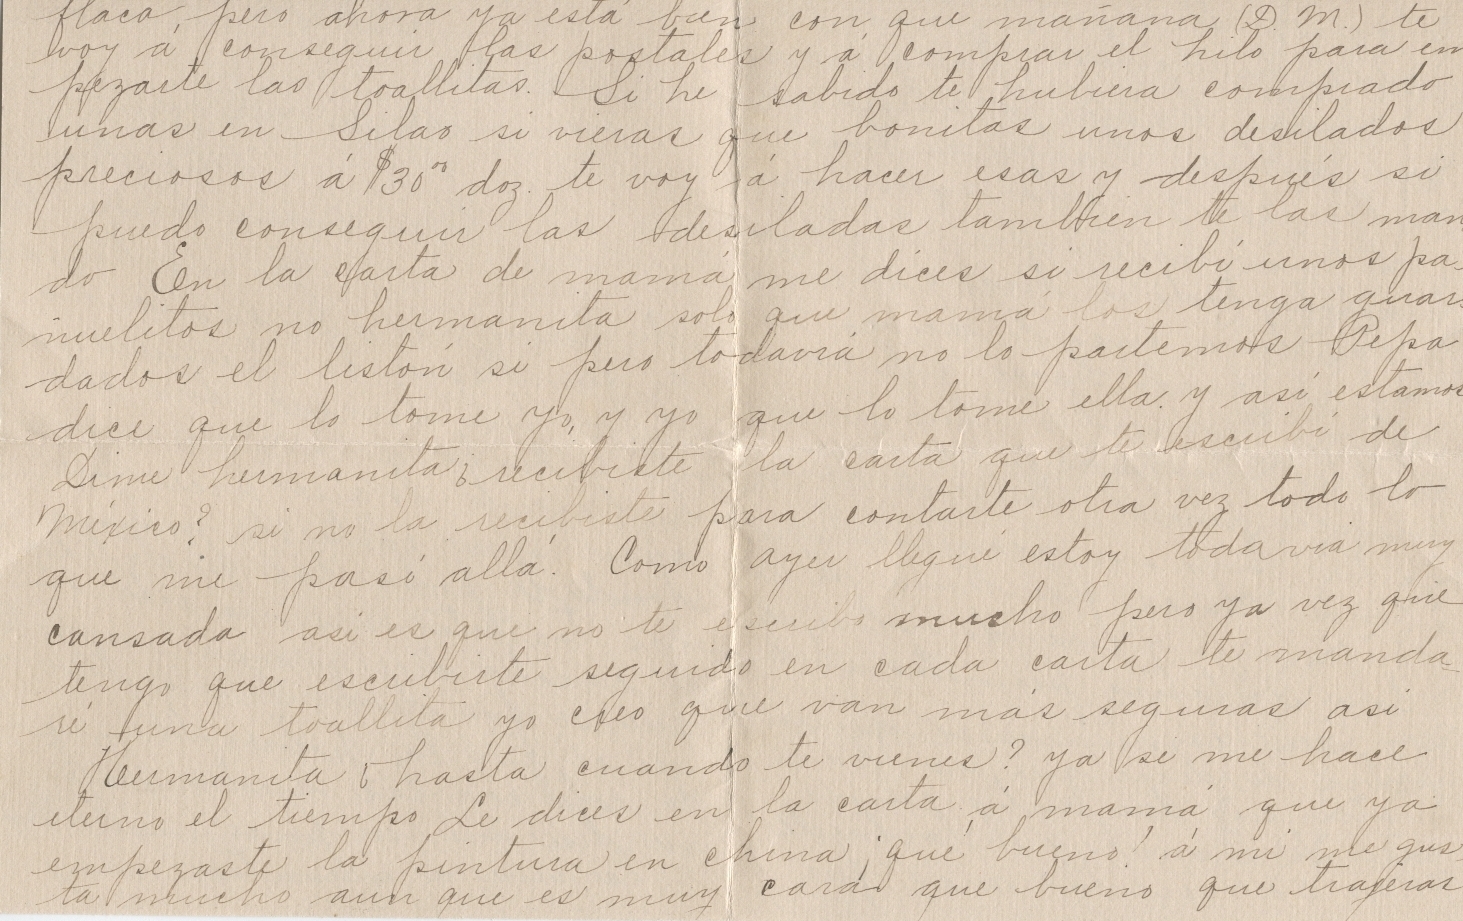 flaca, pero ahora ya está bien con que mañana (D. M.) te
voy á conseguir las postales y á comprar el hilo para em
pezarte las toallitas. Si he sabido te hubiera comprado
unas en Silao si vieras que bonitas unos desilados
preciosos á $30⁰⁰ doz. te voy á hacer esas y después si
puedo conseguir las desiladas tambien te las man
do En la carta de mamá me dices si recibí unos pa
ñuelitos no hermanita solo que mamá los tenga guar
dados el listón si pero todavía no lo partemos Pepa
dice que lo tome yo, y yo que lo tome ella. y así estamos
Dime hermanita ¿recibiste la carta que te escribí de
México? si no la recibiste para contarte otra vez todo lo
que me pasó allá. Como ayer llegué estoy todavia muy
cansada asi es que no te escribo mucho pero ya vez que
tengo que escribirte seguido en cada carta te manda
ré una toallita yo creo que van más seguras asi
Hermanita ¿hasta cuando te vienes? ya se me hace
eterno el tiempo Le dices en la carta á mamá que ya
empezaste la pintura en china ¡qué bueno! á mi me gus
ta mucho aun que es muy cara que bueno que trajeras